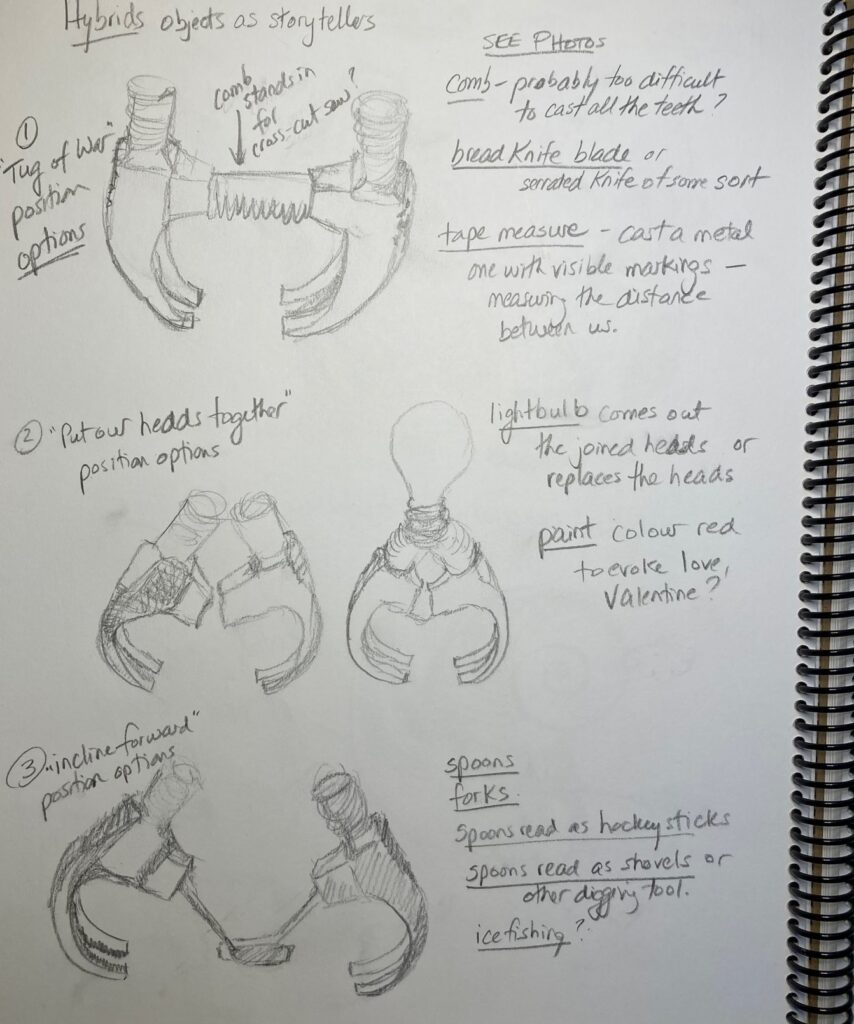 Hybrids objects as storytellers
SEE PHOTOS
comb
stands in
for
cross-cut saw?
①
"Tug of War"
position
options
comb - probably too difficult
to cast all the teeth?
bread knife blade or
serrated knife of some sort
tape measure - cast a metal
one with visible markings -
measuring the distance
between us.
② "Put our heads together"
position options
lightbulb comes out
the joined heads or
replaces the heads
paint colour red
to evoke love,
Valentine?
③ "incline forward"
position options
spoons
forks.
spoons read as hockey sticks
spoons read as shovels or
other digging tool.
ice fishing?